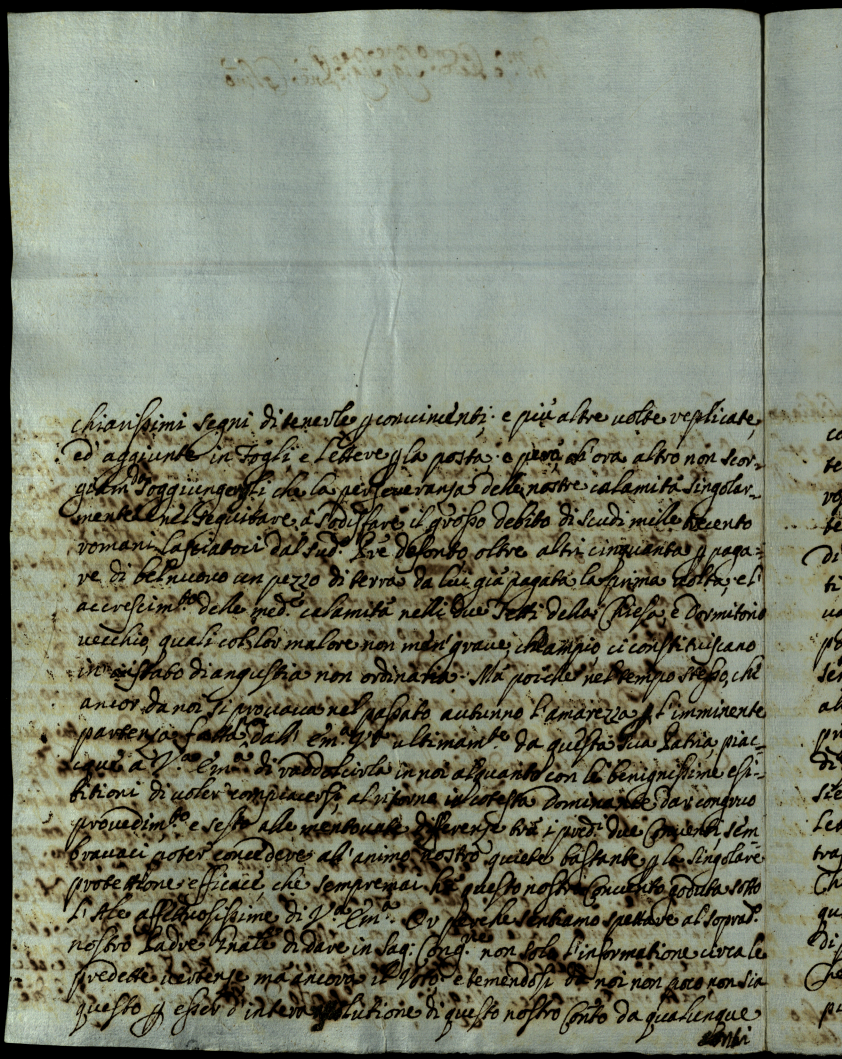 chiarissimi segni di tenerle p convincenti: e più altre volte replicate,
ed' aggiunte in Fogli, e Lettere p la posta: e però, ab'ora altro non scor-
giam.o soggiungerli che la perseveranza delle nostre calamità singolar-
mente nel seguitare à sodisfare il grosso debito di scudi mille trecento
romani lasciatoci dal sud.o Pre defonto oltre altri cinquanta p paga-
re di bel nuovo un pezzo di terra da lui già pagata la prima volta, e l'
accrescim.to delle med.e calamità nelli due Tetti della Chiesa, e Dormitorio
vecchio, quali col lor malore non men' grave, che ampio ci constituiscano
in istato di angustia non ordinaria. Mà poiche nel tempo stesso, che
ancor da noi si provava nel passato autunno l'amarezza p l'imminente
partenza fatta dall' Em.a V.ra ultimam.te da questa sua Patria piac-
que à V.a Em.a di raddolcirla in noi alquanto con le benignissime esi-
bitioni di voler compiacersi al ritorno in cotesta Dominante dar congruo
provedim.to e sesto alle mentovate differenze trà i pred.i due Conventi, sem
bravaci poter concedere al' animo nostro quiete bastante p la singolare
protettione efficace, che sempremai hà questo nostro Convento goduta sotto
l'Ale affettuosissime di V.a Em.a Or perche sentiamo spettare al soprad.o
nostro Padre Gñale di dare in Sag: Cong.ne non solo l'informatione circa le
predette vertenze mà ancora il Voto: e temendosi da noi non poco non sia
questo p esser d'intera solutione di questo nostro Conto da qualunque